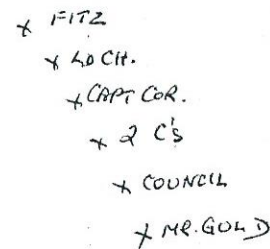 x FITZ
x LOCH.
x CAPT COR.
x 2 C's
x COUNCIL
x MR. GOLD